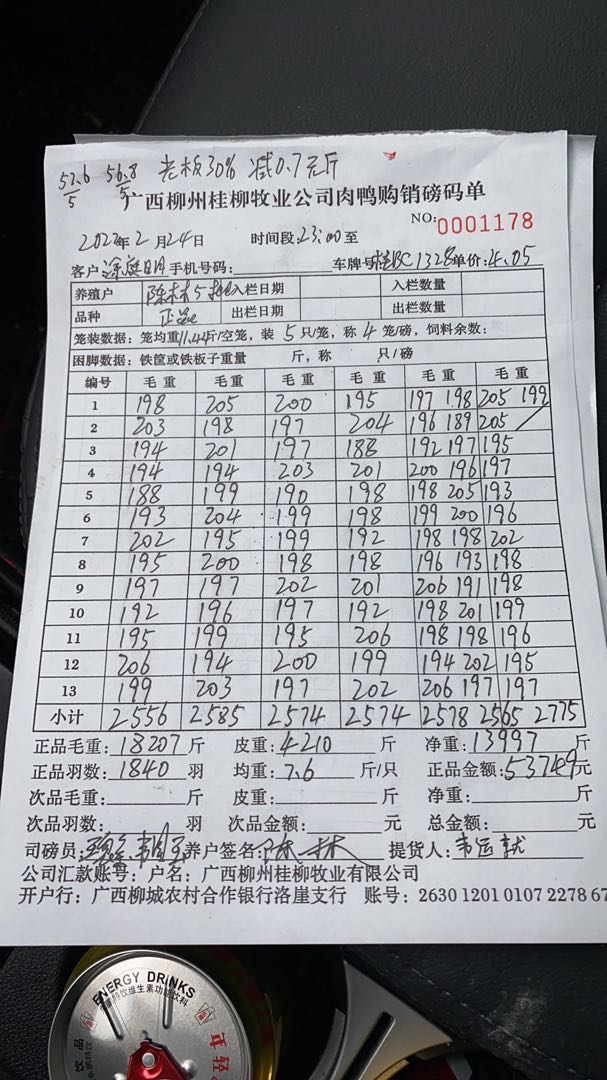 57.6/5 56.8/5 老板30% 减0.7元/斤
广西柳州桂柳牧业公司肉鸭购销磅码单
NO: 0001178
2022年2月24日 时间段:23:00至
客户:涂庭明 手机号码: 车牌号:桂BC1328 单价:4.05
养殖户 陈林 入栏日期 入栏数量
品种 正品 出栏日期 出栏数量
笼装数据: 笼均重11.44斤/空笼, 装5只/笼, 称4笼/磅, 饲料余数:
困脚数据: 铁筐或铁板子重量 斤, 称 只/磅
编号 毛重 毛重 毛重 毛重 毛重 毛重
1 198 205 200 195 197 198 205 199
2 203 198 197 204 196 189 205
3 194 201 197 188 192 197 195
4 194 194 203 201 200 196 197
5 188 199 190 198 198 205 193
6 193 204 199 198 199 200 196
7 202 195 199 192 198 198 202
8 195 200 198 198 196 193 198
9 197 197 202 201 206 191 198
10 192 196 197 192 198 201 199
11 195 199 195 206 198 198 196
12 206 194 200 199 194 202 195
13 199 203 197 202 206 197 197
小计 2556 2585 2574 2574 2578 2565 2775
正品毛重:18207斤 皮重:4210斤 净重:13997斤
正品羽数:1840羽 均重:7.6斤/只 正品金额:53749元
次品毛重: 斤 皮重: 斤 净重: 斤
次品羽数: 羽 次品金额: 元 总金额: 元
司磅员: 养户签名:陈林 提货人:韦运
公司汇款账号: 户名: 广西柳州桂柳牧业有限公司
开户行: 广西柳城农村合作银行洛崖支行 账号: 2630 1201 0107 2278 67
ENERGY DRINKS
维生素功能饮料
饮品
年轻